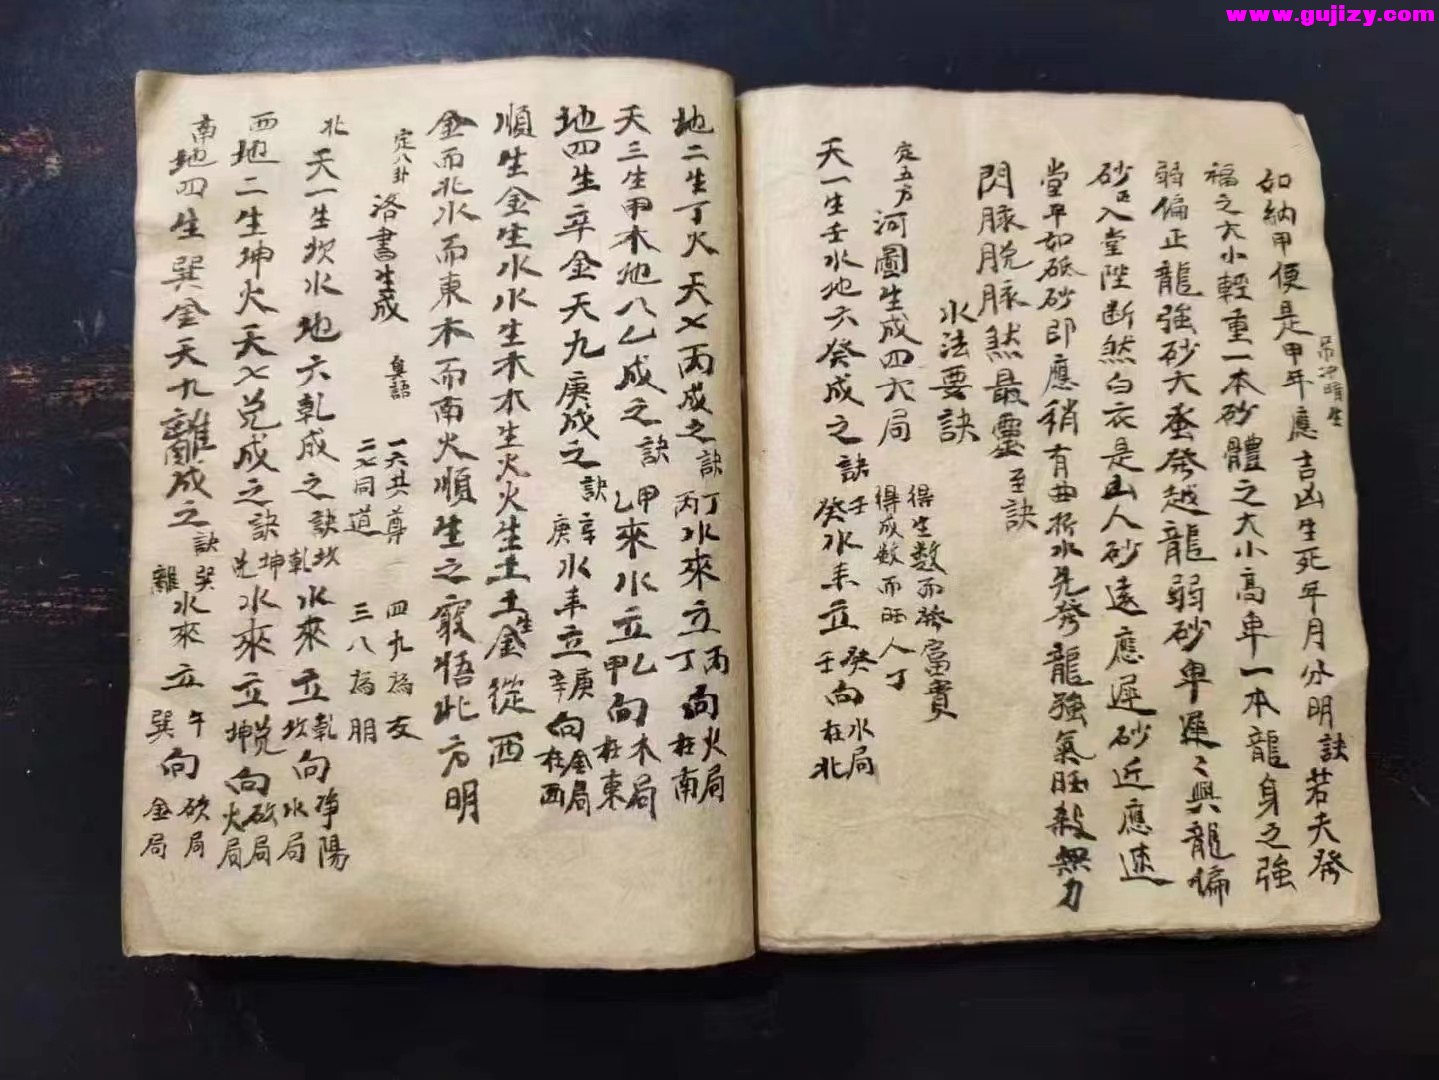 www.gujizy.com
如納甲便是甲年應吉凶生死年月分明訣若夫發
吊冲暗生
福之大小輕重一本砂體之大小高卑一本龍身之強
弱偏正龍強砂大蚤發越龍弱砂卑遲〻興龍偏
砂正入堂陛断然白衣是凶人砂遠應遲砂近應速
堂平如砥砂即應稍有曲折水先發龍強氣旺殺無力
閃脉脱脉煞最靈 至訣
水法要訣
定五方 河圖生成四大局 得生數而發富貴
得成数而旺人丁
天一生壬水地六癸成之訣壬癸水来立癸壬向水局在北
地二生丁火天七丙成之訣丁丙水來立丙丁向火局在南
天三生甲木地八乙成之訣甲乙來水立乙甲向木局在東
地四生辛金天九庚成之訣辛庚水来立庚辛向金局在西
順生金生水水生木木生火火生土土生金從西
金而北水而東木而南火順生之竅悟此方明
定八卦 洛書生成 奥語 一六共尊 四九為友
二七同道 三八為朋
北 天一生坎水地六乾成之訣坎乾水來立乾坎向淨陽水局
西 地二生坤火天七兑成之訣坤兑水來立兑坤向火局
南 地四生巽金天九離成之訣巽離水來立午巽向金局